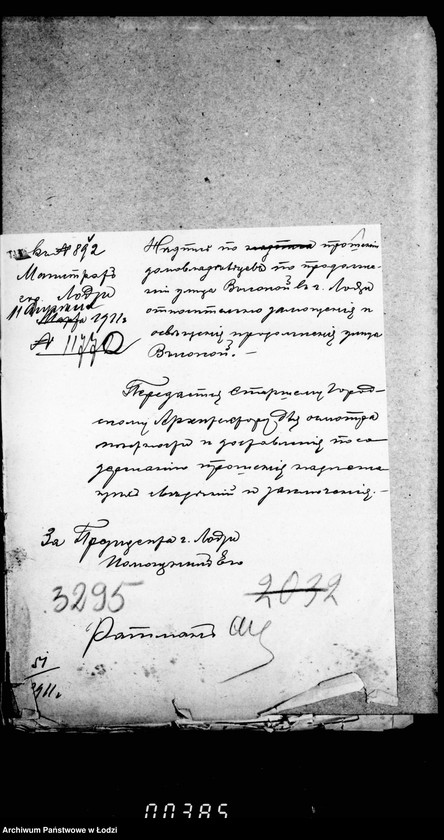 къ № 892
Магистратъ
гор. Лодзи
11 Апрѣля
Марта 1911 г.
№ 11770
Надпись по прошенію
домовладѣльцевъ по продолже-
нію улицы Видной въ г. Лодзи
относительно замощенія и
освѣщенія продолженія улицы
Видной. —
Передается Старшему Город-
скому Архитектору для осмотра
мѣстности и доставленія по со-
держанію прошенія
свѣдѣній и заключенія. —
За Президента г. Лодзи
Помощникъ Его
3295
2032
Ратманъ
51
1911 г.
00385
Archiwum Państwowe w Łodzi